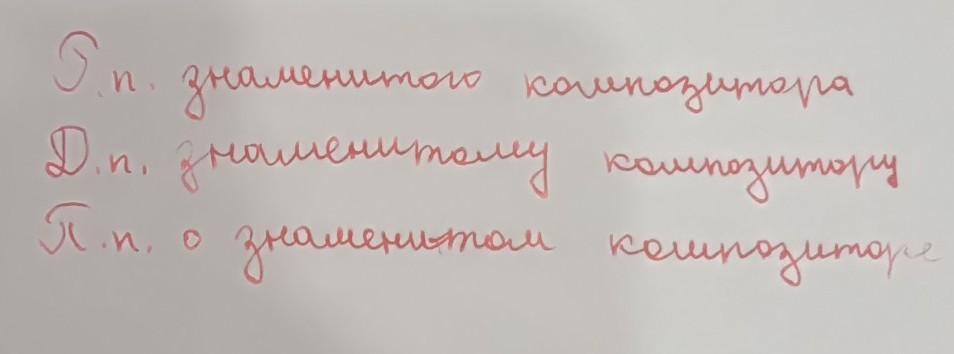 Р.п. знаменитого композитора
Д.п. знаменитому композитору
П.п. о знаменитом композиторе